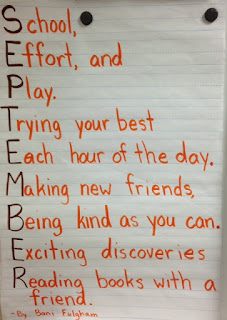 School,
Effort, and
Play.
Trying your best
Each hour of the day.
Making new friends,
Being kind as you can.
Exciting discoveries
Reading books with a
friend.
-By Bani Fulgham